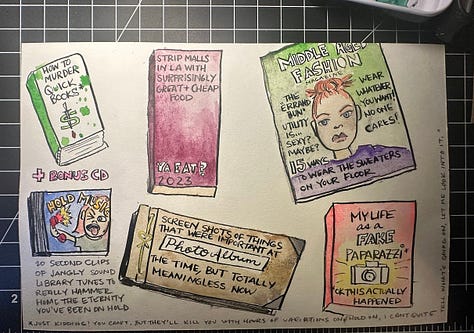 HOW TO
MURDER
QUICK
BOOKS*
$
+ BONUS CD
HOLD MUSIC
20 SECOND CLIPS
OF JANGLY SOUND
LIBRARY TUNES TO
REALLY HAMMER
HOME THE ETERNITY
YOU'VE BEEN ON HOLD
STRIP MALLS
IN LA WITH
SURPRISINGLY
GREAT + CHEAP
FOOD
YA EAT?
2023
MIDDLE AGED
FASHION
MAGAZINE
THE
"ERRAND
BUN"
UTILITY
IS...
SEXY?
MAYBE?
WEAR
WHATEVER
YOU WANT!
NO ONE
CARES!
15 WAYS
TO WEAR THE SWEATERS
ON YOUR FLOOR
SCREEN SHOTS OF THINGS
THAT WERE IMPORTANT AT
Photo Album
THE TIME BUT TOTALLY
MEANINGLESS NOW
MY LIFE
as a
FAKE
PAPARAZZI*
*OK THIS ACTUALLY
HAPPENED
*JUST KIDDING! YOU CAN'T, BUT THEY'LL KILL YOU WITH HOURS OF VARIATIONS ON "HOLD ON, I CAN'T QUITE
TELL WHAT'S GOING ON, LET ME LOOK INTO IT,"
2